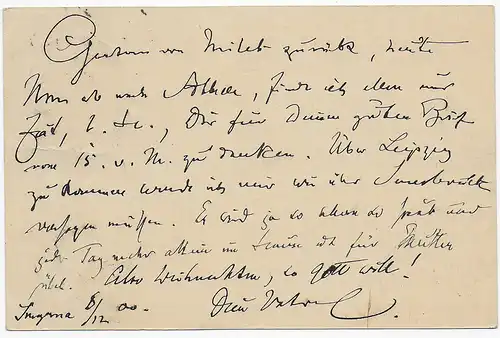 Gestern von Milet zurück, heute
Abend ab nach Athen, finde ich eben nur
Zeit, l. H., Dir für Deinen guten Brief
vom 15. v. M. zu danken. Über Leipzig
zu kommen werde ich mir wie über Innsbruck
versagen müssen. Es wird ja so schon so spät und
jeder Tag mehr allein im Hause ist für Mutter
übel. Also Weihnachten, so Gott will!
Smyrna 8/12 00. Dein Vater